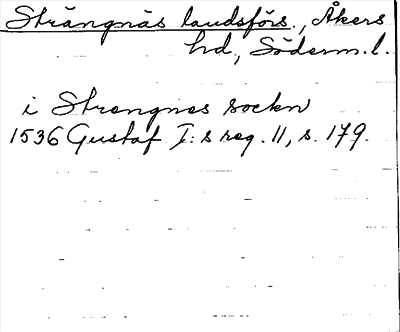 Strängnäs landsförs., Åkers
hd., Söderm. l.
i Strengnes sockn
1536 Gustaf I:s reg. 11, s. 179.